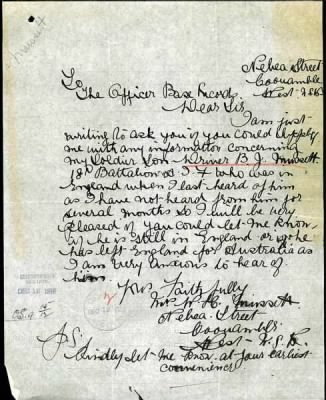 Nebea Street
Coonamble
West N.S.W.
To
The Officer Base Records
Dear Sir
I am just
writing to ask you if you could supply
me with any information concerning
my soldier son Driver B J Missett
18 Battalion A I F who was in
England when I last heard of him
as I have not heard from him for
several months so I will be very
pleased if you could let me know
if he is still in England or if he
has left England for Australia as
I am very anxious to hear of
him.
Yours Faithfully
Mrs H. Missett
Nebea Street
Coonamble
West N.S.W.
P.S.
Kindly let me know at your earliest
convenience